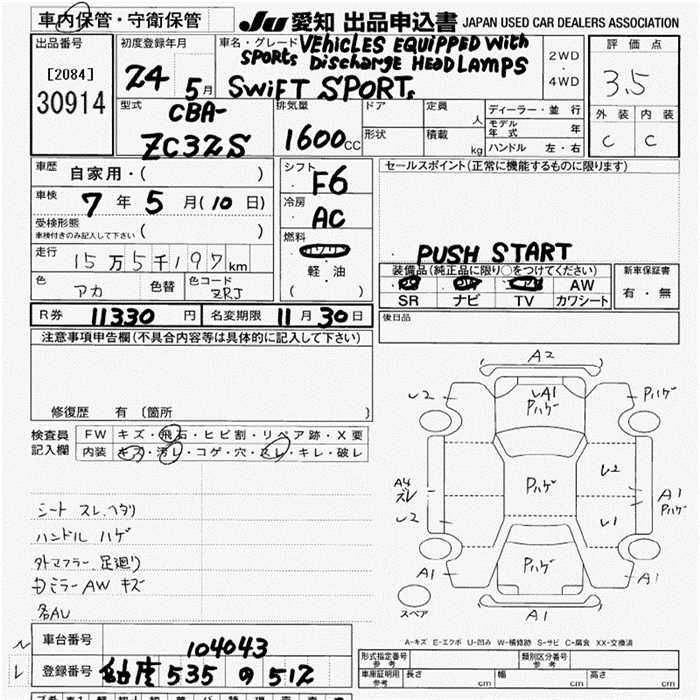 車内保管・守衛保管
JU 愛知 出品申込書 JAPAN USED CAR DEALERS ASSOCIATION
出品番号
[2084]
30914
初度登録年月
24 5月
車名・グレード VEHICLES EQUIPPED With
SPORTs Discharge HEAD LAMPS
SWiFT SPORTs
2WD
・
4WD
評価点
3.5
外装 内装
C C
型式
CBA-
ZC32S
排気量
1600cc
ドア
定員
人
形状
積載
kg
ディーラー・並行
モデル年式 年
ハンドル 左・右
車歴
自家用・( )
車検
7年5月(10日)
受検形態
車検付きのみ記入して下さい ( )
走行
15万5千197km
色
アカ
色替
色コード
ZRJ
シフト
F6
冷房
AC
燃料
ガソリン
・
軽・油
( )
セールスポイント(正常に機能するものに限ります)
PUSH START
装備品(純正品に限り○をつけてください)
AW
SR ナビ TV カワシート
新車保証書
有・無
R券 11330円 名変期限 11月30日
後日品
注意事項申告欄(不具合内容等は具体的に記入して下さい)
修復歴 有 〔箇所 〕
検査員
記入欄
FW キズ・飛石・ヒビ割・リペア跡・X要
内装 キズ・汚レ・コゲ・穴・スレ・キレ・破レ
シート スレ、ヘタリ
ハンドル ハゲ
外マフラー 足廻り
カミラー AW キズ
各AU
A2
レ2
レA1
Pハゲ
Pハゲ
A4
スレ
Pハゲ
レ2
A1
Pハゲ
レ2
レ1
A1
Pハゲ
A1
A1
スペア
A-キズ E-エクボ U-凹み W-補修跡 S-サビ C-腐食 XX-交換済
車台番号 104043
登録番号 535 の 512
形式指定番号
参考
類別区分番号
参考
車庫証明用
参考
長さ cm 幅 cm 高さ cm